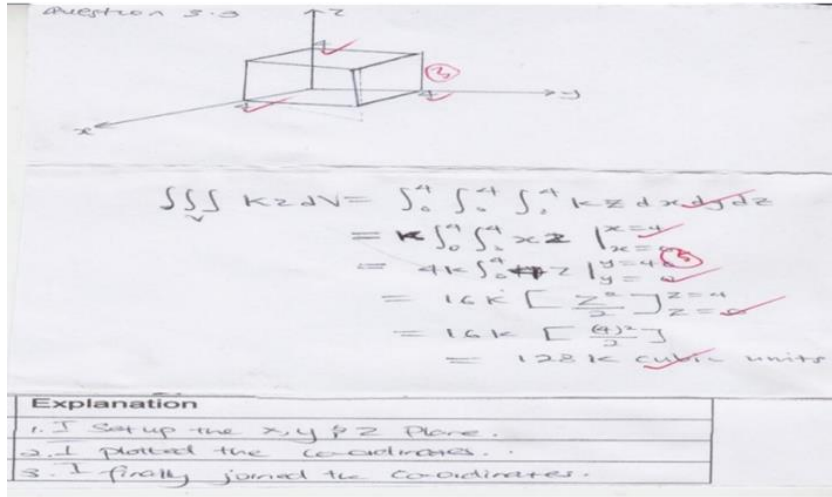 Question 3.3
z
4
3
4
4
y
x
∫∫∫ kz dV = ∫₀⁴ ∫₀⁴ ∫₀⁴ kz dx dy dz
V
= k ∫₀⁴ ∫₀⁴ xz |ˣ⁼⁴ₓ₌₀
= 4k ∫₀⁴ z | y=4 y=0
3
= 16k [ z²/2 ] z=4 z=0
= 16k [ (4)²/2 ]
= 128k cubic units
Explanation
1. I set up the x, y & z Plane.
2. I plotted the co-ordinates.
3. I finally joined the co-ordinates.